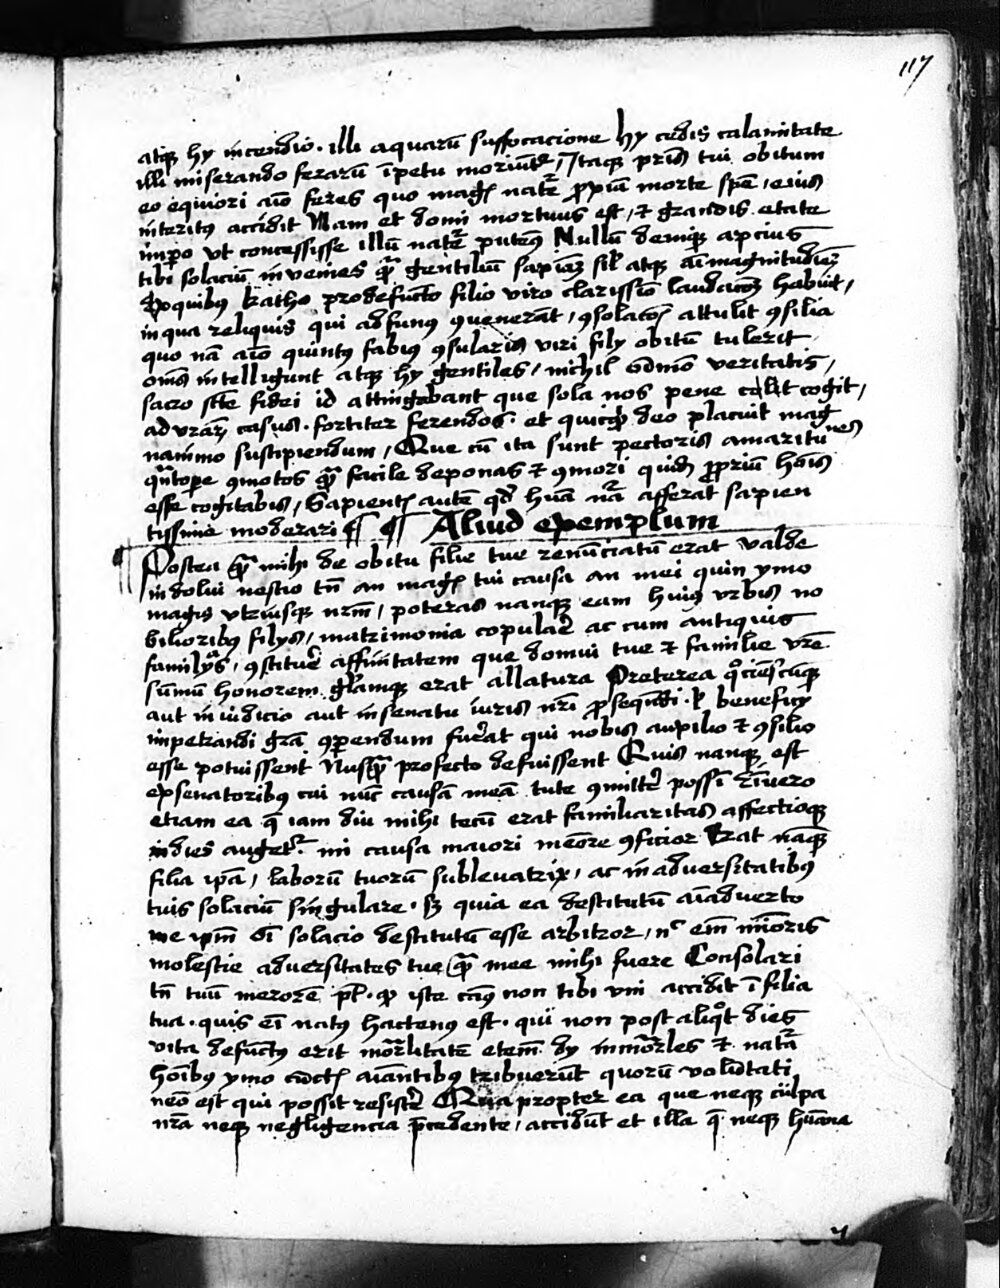 117
atque hy incendio · illi aquarū suffocacione hy cedis calamitate
illi miserando ferarū īpetu moriūtr / Itaque pris tui obitum
eo equiori aīo feres quo magis natē ꝓpiū morte spē / eius
interitꝰ accidit Nam et domi mortuus est / et grandis etate
ut concessisse illū natē putes Nullū denique apcius
tibi solaciū invenies quā gentiliū sapiam sil atque aīmagnitudiēm
E quibus Katho prodefuncto filio viro clarissīo laudacōem habuit /
in qua reliquis qui ad funus ꝯvenerāt / ꝯsolacōis attulit ꝯsilia
quo nā aīo quintꝰ fabius ꝯsularis viri fily obitū tulerit
oms intelligunt atque hy gentiles / nichil odmō veritatis /
sacro scte fidei id attingebant que sola nos pene cogit /
ad casus · fortiter ferendos · et quicquid deo placuit mag
nanimo suscipiendum / Que cū ita sunt pectoris amaritu nes
ꝯmotos quā facile deponas et ꝯmori quid propriū hois
esse cogitabis / Sapientis autē qd huā nrā afferat sapien
tissime moderari ¶ ¶ Aliud exemplum
Postea quā mihi de obitu filie tue renūciatū erat valde
indolui nescio tn an magis tui causa an mei quin ymo
magis utriusque nrm / poteras nanque eam huius urbis no
bilioribus filys / matrimonia copulare ac cum antiquis
familys / ꝯstituere affinitatem que domui tue et familie vre
sūmū honorem glamque erat allatura Preterea
aut in iudicio aut in senatu iuris nri prosequendi · l beneficy
impetrandi grā fuerat qui nobis auxilio et ꝯsilio
esse potuissent Nusquā profecto defuissent Quis nanque est
ex senatoribus cui nūc causā meā tute ꝯmittere possī
etiam ea q iam diu mihi tecū erat familiaritas affectioque
indies augetr · mi causa maiori merore ꝯficior Erat nanque
filia ipā / laborū tuorū sublevatrix / ac in adversitatibus
tuis solaciū singulare · Sz quia ea destitutū aīadverto
me ipm oī solacio destitutū esse arbitror / nc em minoris
molestie adversitates tue quā mee mihi fuere Consolari
tn tuū merorē · iste non tibi uni accidit ī filia
tua · quis eī natus hactenus est · qui non post aliqot dies
vita defunctus erit mortalitatē etem dy inmortles et natā
hoibus ymo cūctis aīantibus tribuerūt quorū volūtati
nemo est qui possit resistere Quapropter ea que neque culpa
nra neque negligencia precedente / accidūt et illa q neque humana